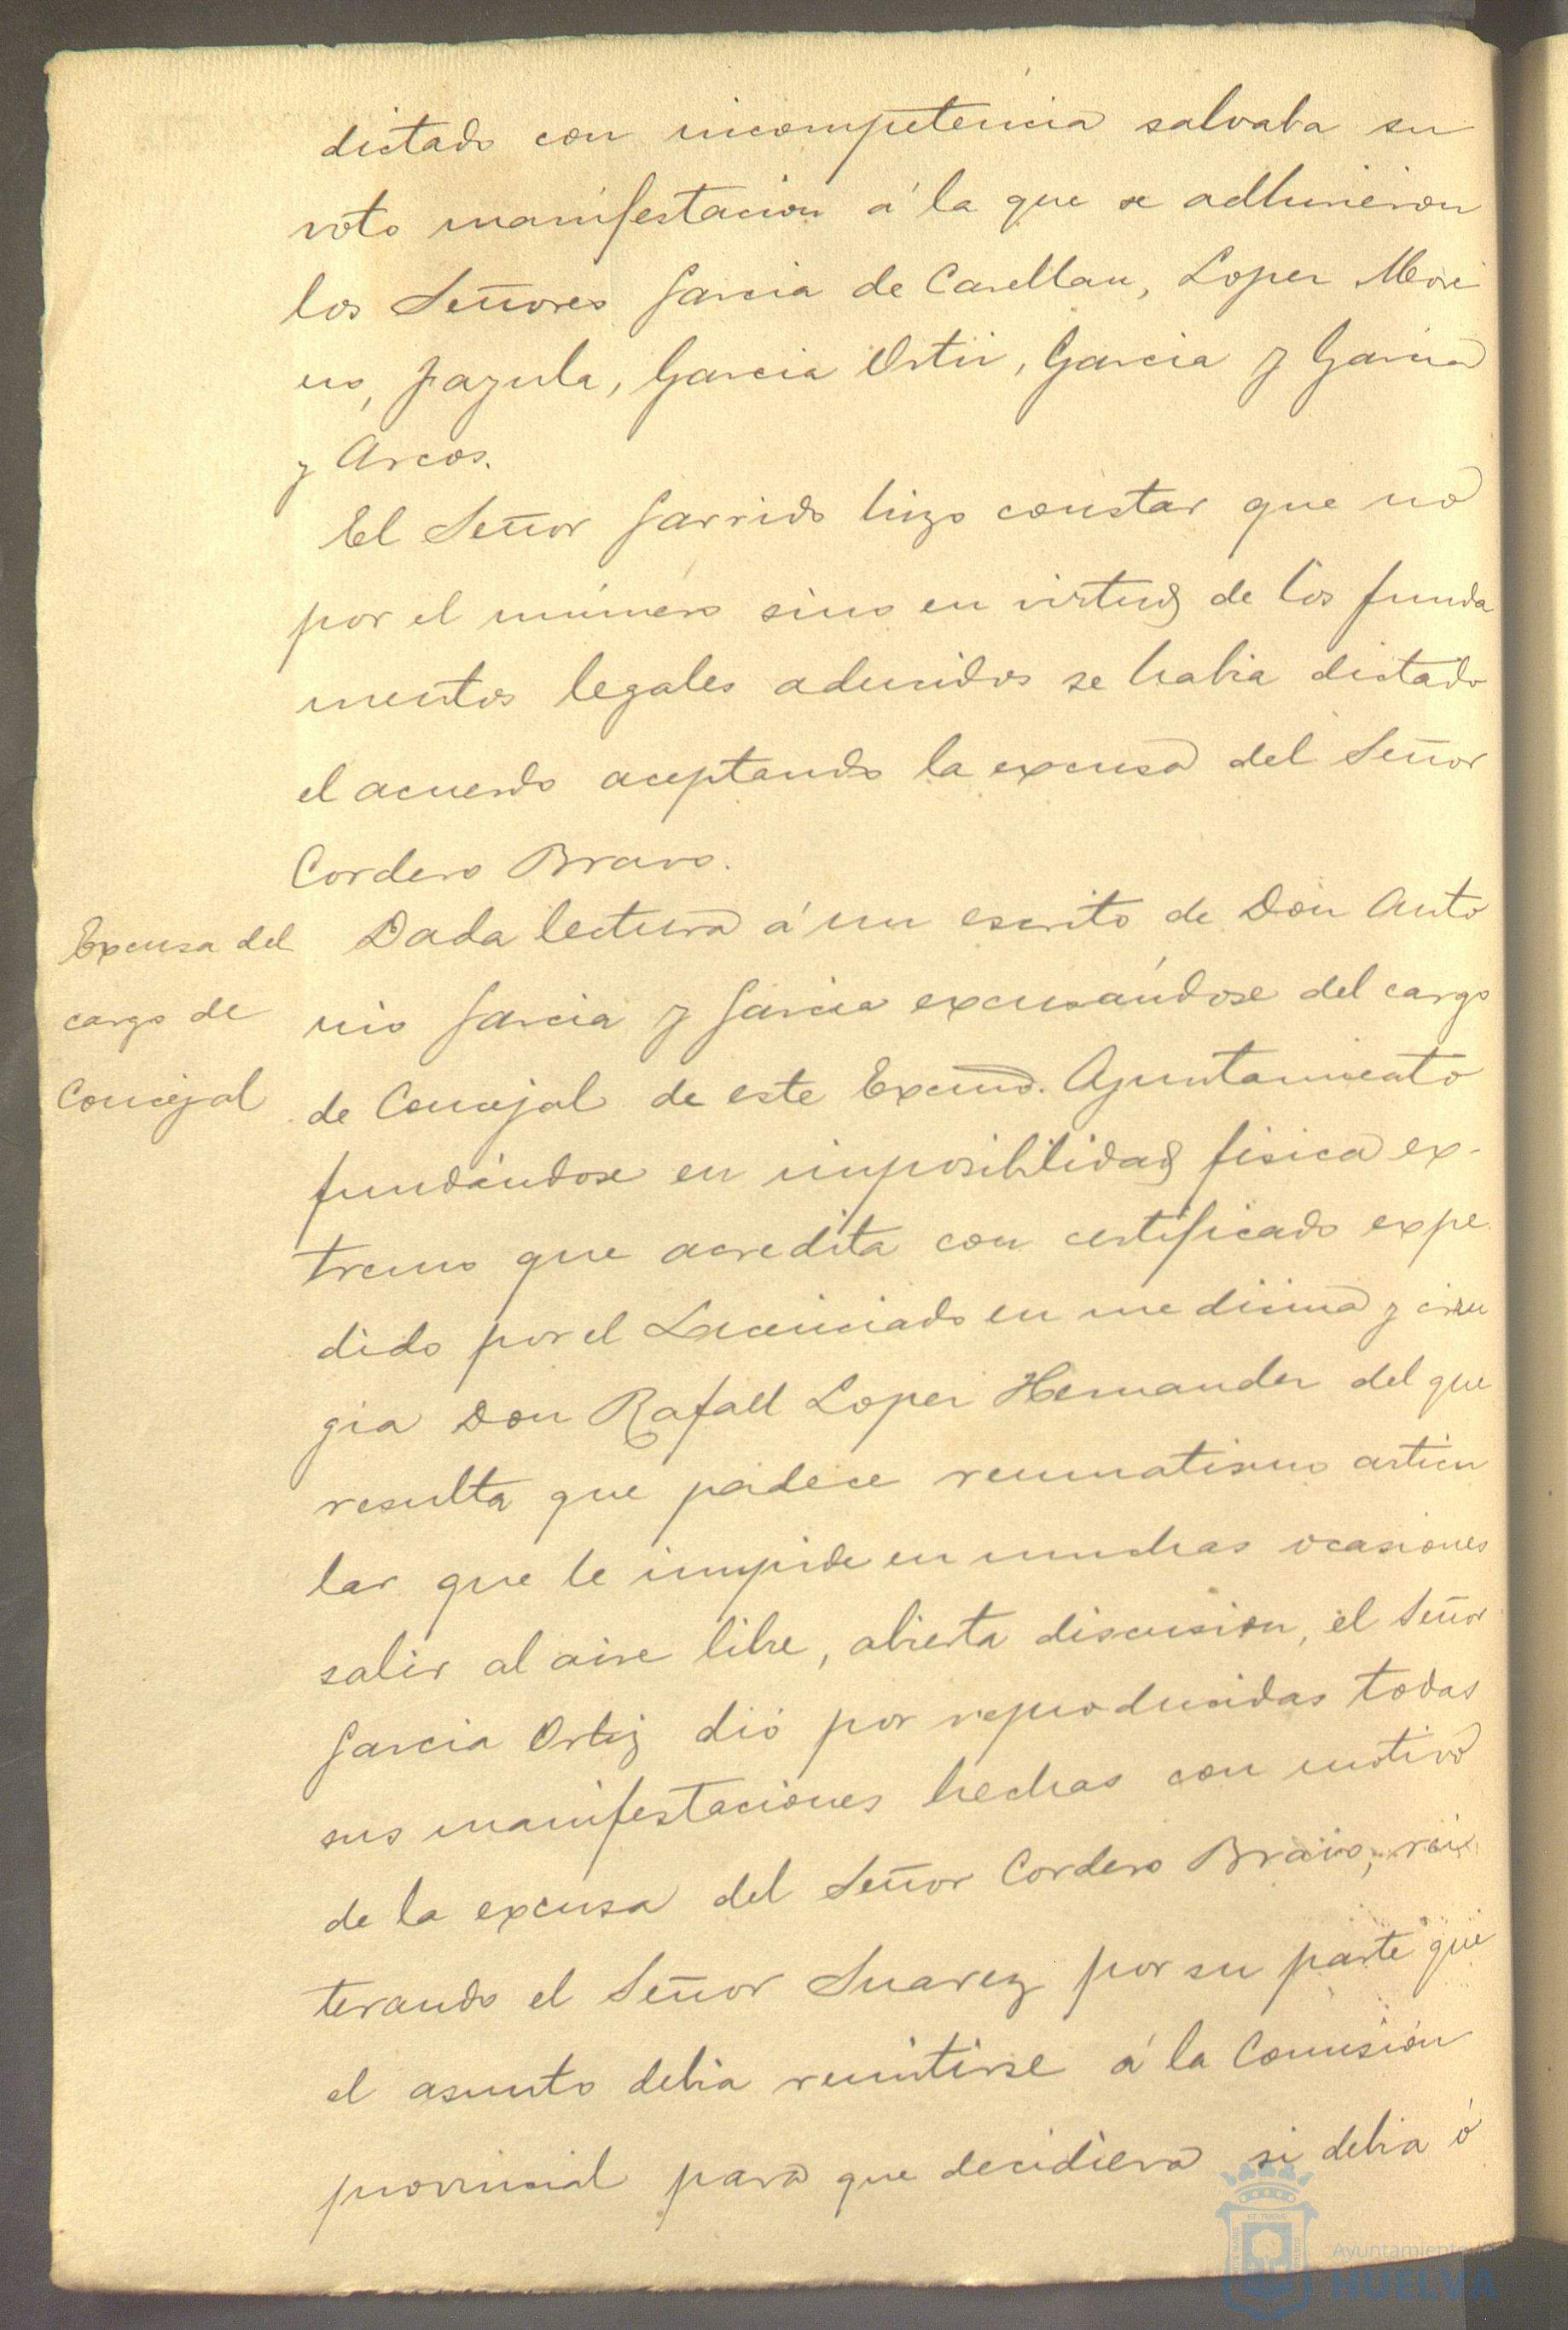 dictado con incompetencia salvaba su
voto manifestacion á la que se adhirieron
los Señores Garcia de Casellan, Lopez More
no, Jazula, Garcia Ortiz, Garcia y Garcia
y Arcos.
El Señor Garrido hizo constar que no
por el número sino en virtud de los funda
mentos legales aducidos se habia dictado
el acuerdo aceptando la excusa del Señor
Cordero Bravo.
Excusa del
cargo de
Concejal
Dada lectura á un escrito de Don Anto
nio Garcia y Garcia excusándose del cargo
de Concejal de este Excmo. Ayuntamiento
fundándose en imposibilidad fisica ex-
tremo que acredita con certificado expe
dido por el Licenciado en medicina y ciru
gia Don Rafael Lopez Hernandez del que
resulta que padece reumatismo articu
lar que le impide en muchas ocasiones
salir al aire libre, abierta discusion, el Señor
Garcia Ortiz dió por reproducidas todas
sus manifestaciones hechas con motivo
de la excusa del Señor Cordero Bravo, rei
terando el Señor Suarez por su parte que
el asunto debia remitirse á la Comisión
provincial para que decidiera si debia ó
Ayuntamiento de
HUELVA